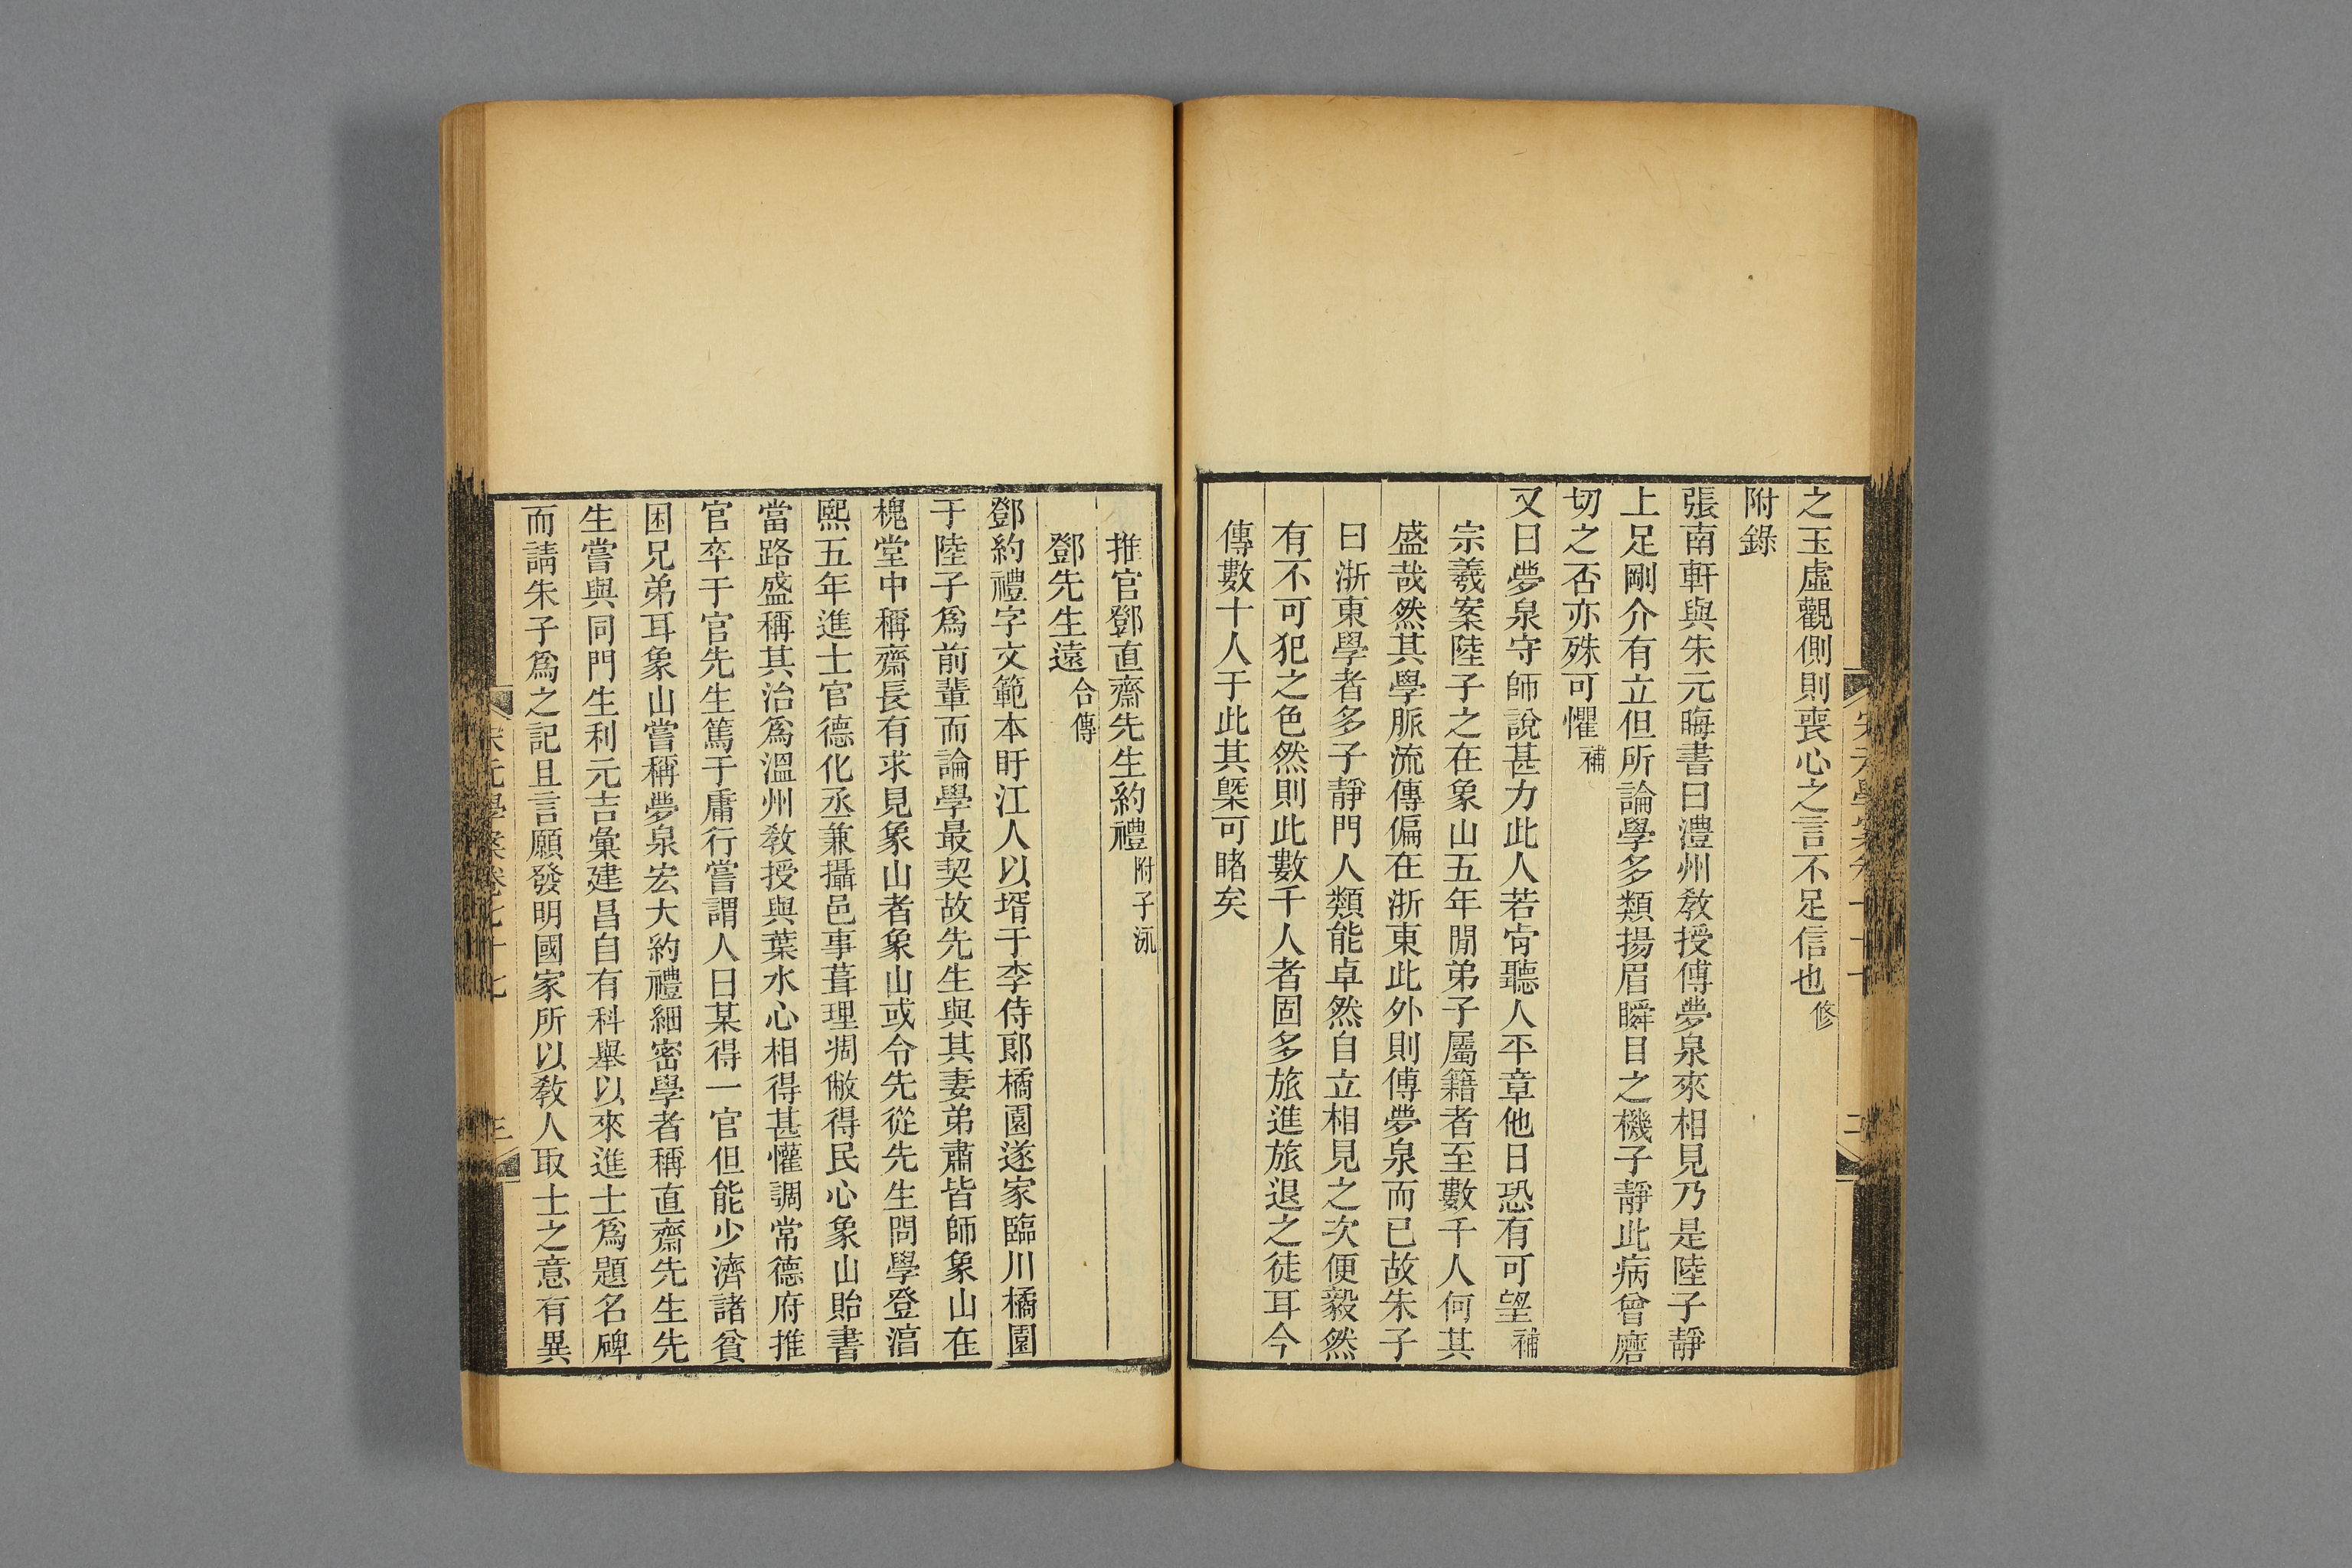 之玉虛觀側則喪心之言不足信也修
附錄
張南軒與朱元晦書曰澧州敎授傅夢泉來相見乃是陸子靜
上足剛介有立但所論學多類揚眉瞬目之機子靜此病曾磨
切之否亦殊可懼補
又曰夢泉守師說甚力此人若肯聽人平章他日恐有可望補
宗羲案陸子之在象山五年閒弟子屬籍者至數千人何其
盛哉然其學脈流傳偏在浙東此外則傅夢泉而已故朱子
曰浙東學者多子靜門人類能卓然自立相見之次便毅然
有不可犯之色然則此數千人者固多旅進旅退之徒耳今
傳數十人于此其槩可睹矣
推官鄧直齋先生約禮附子泳
鄧先生遠合傳
鄧約禮字文範本盱江人以壻于李侍郎橘園遂家臨川橘園
于陸子爲前輩而論學最契故先生與其妻弟肅皆師象山在
槐堂中稱齋長有求見象山者象山或令先從先生問學登淳
熙五年進士官德化丞兼攝邑事葺理凋敝得民心象山貽書
當路盛稱其治爲溫州敎授與葉水心相得甚懽調常德府推
官卒于官先生篤于庸行嘗謂人曰某得一官但能少濟諸貧
困兄弟耳象山嘗稱夢泉宏大約禮細密學者稱直齋先生先
生嘗與同門生利元吉彙建昌自有科舉以來進士爲題名碑
而請朱子爲之記且言願發明國家所以敎人取士之意有異
宋元學案卷七十七
三